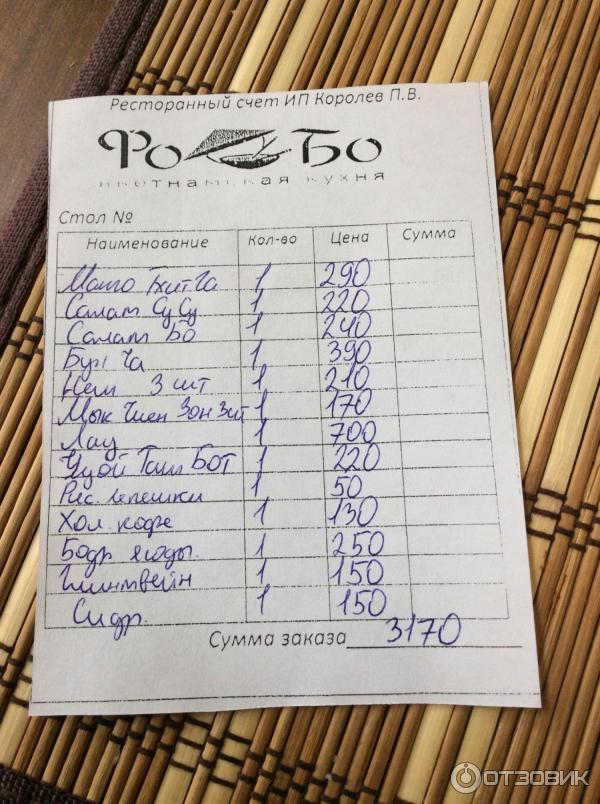 Ресторанный счет ИП Королев П.В.
Фо Бо
вьетнамская кухня
Стол №
Наименование Кол-во Цена Сумма
1 290
Салат Су Су 1 220
Салат Бо 1 240
Бун Ча 1 390
Нем 3 шт 1 210
Мык Чиен Зон 3шт 1 170
Лау 1 700
Чуой Там Бот 1 220
Рис. лепешки 1 50
Хол. кофе 1 130
Бодр ягоды. 1 250
Глинтвейн 1 150
Сидр. 1 150
Сумма заказа 3170
ОТЗОВИК